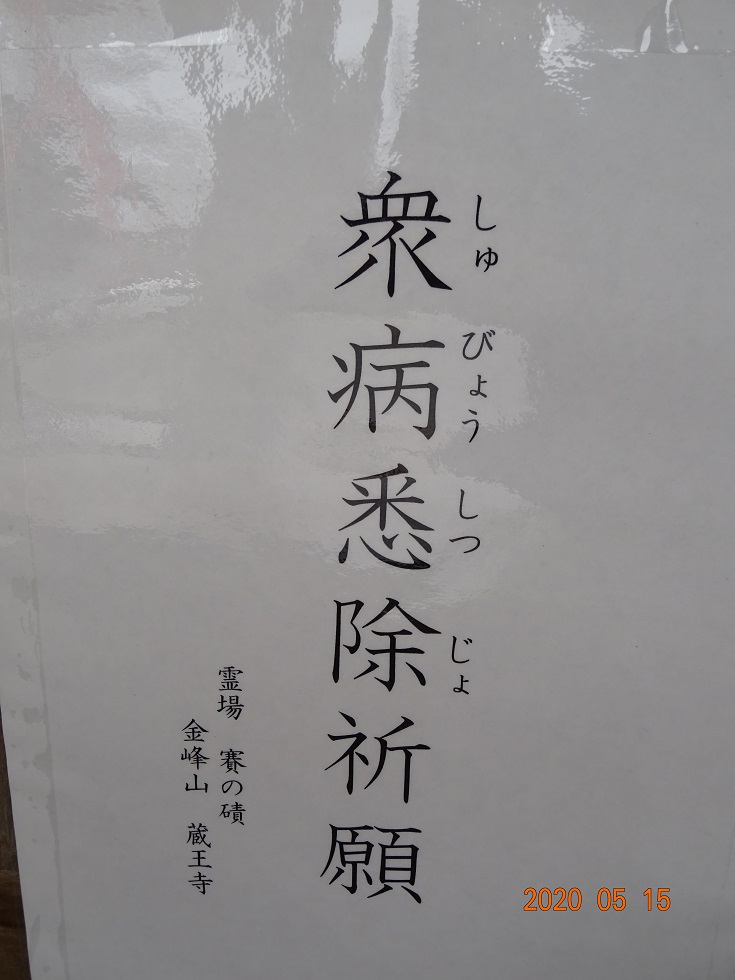 衆病悉除祈願
しゅ びょう しつ じょ
霊場 賽の磧
金峰山 蔵王寺
2020 05 15